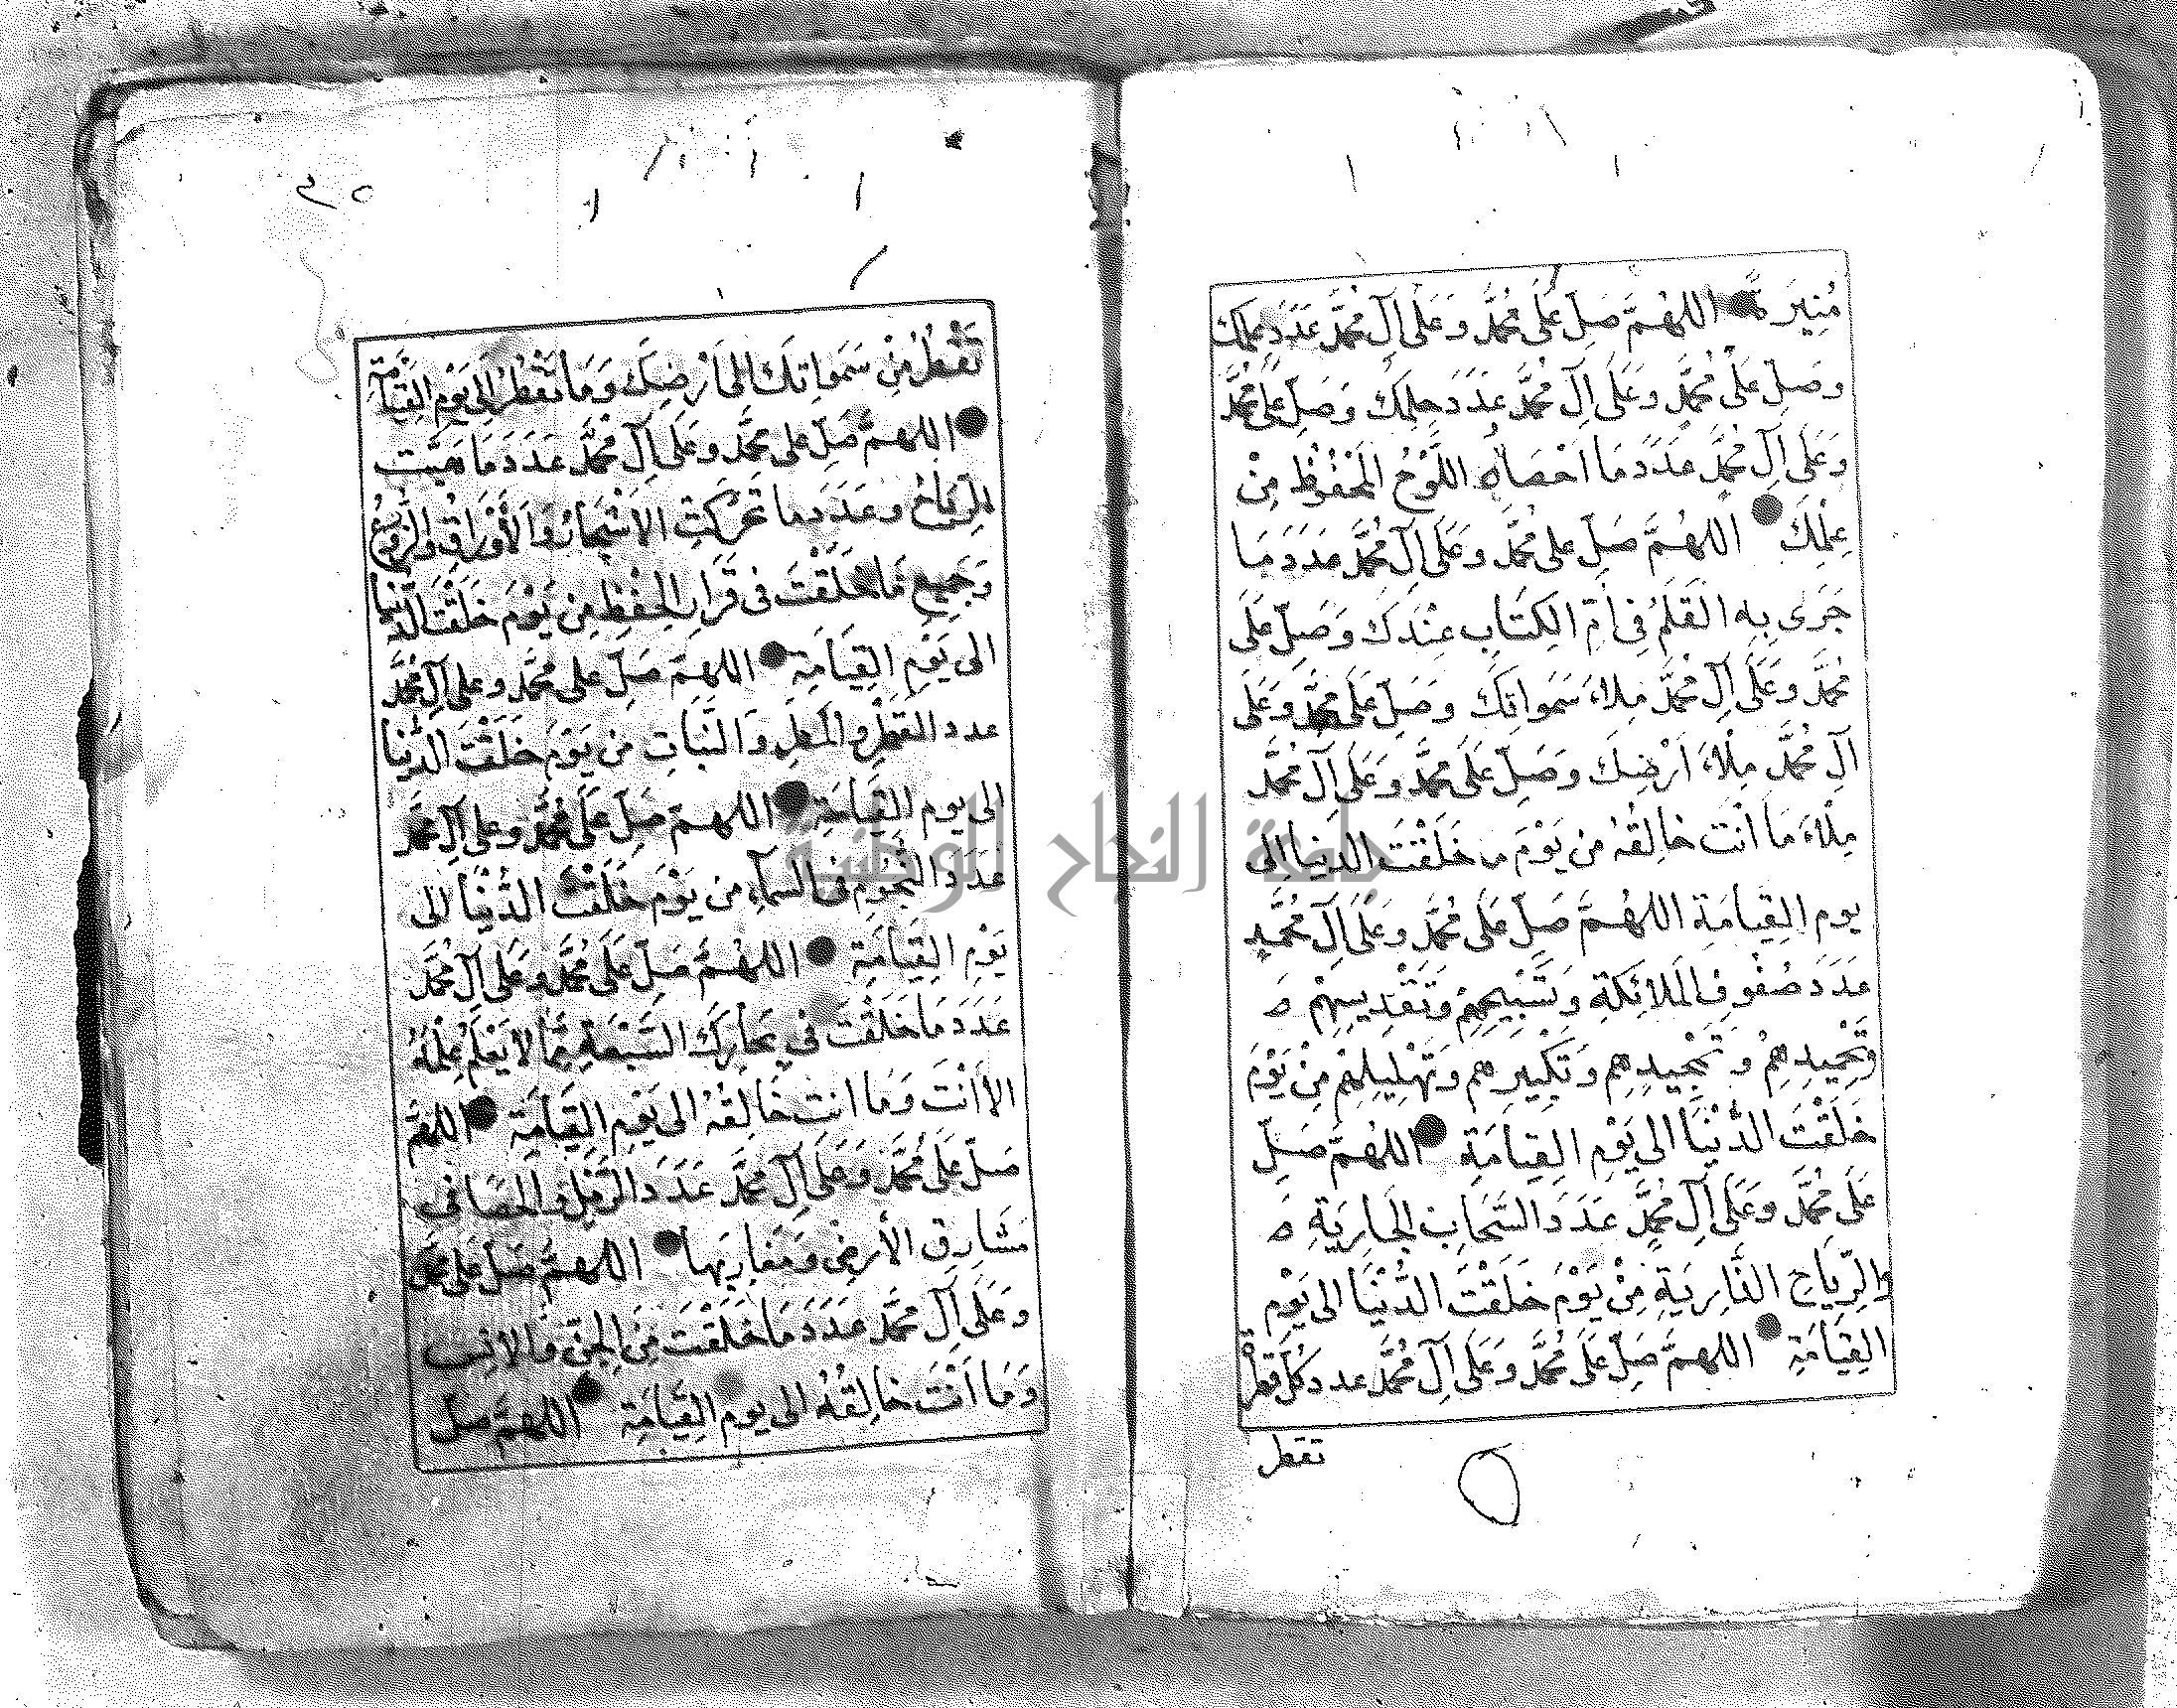 مُنِيرَةً اللهُمَّ صَلِّ عَلَى مُحَمَّدٍ وَعَلَى آلِ مُحَمَّدٍ عَدَدَ عِلْمِكَ
وَصَلِّ عَلَى مُحَمَّدٍ وَعَلَى آلِ مُحَمَّدٍ عَدَدَ حِلْمِكَ وَصَلِّ عَلَى مُحَمَّدٍ
وَعَلَى آلِ مُحَمَّدٍ عَدَدَ مَا اَحْصَاهُ اللَّوْحُ المَحْفُوظُ مِنْ
عِلْمِكَ اللهُمَّ صَلِّ عَلى مُحَمَّدٍ وَعَلَى آلِ مُحَمَّدٍ عَدَدَ مَا
جَرَى بِهِ القَلَمُ فِي اُمِّ الكِتَابِ عِنْدَكَ وَصَلِّ عَلَى
مُحَمَّدٍ وَعَلَى آلِ مُحَمَّدٍ مِلاءَ سَمَوَاتِكَ وَصَلِّ عَلَى مُحَمَّدٍ وَعَلَى
آلِ مُحَمَّدٍ مِلْاءَ اَرْضِكَ وَصَلِّ عَلَى مُحَمَّدٍ وَعَلَى آلِ مُحَمَّدٍ
مِلْاءَ مَا اَنْتَ خَالِقُهُ مِنْ يَوْمَ خَلَقْتَ الدُنيا اِلى
يوم القِيامَةِ اللهُمَّ صَلِّ عَلَى مُحَمَّدٍ وَعَلَى آلِ مُحَمَّدٍ
عَدَدَ صُفُوفِ المَلائِكَةِ وَتَسْبِيحِهِمْ وَتَقْدِيسِهِمْ
وَتَحْمِيدِهِمْ وَتَمْجِيدِهِم وَتَكْبِيرِهِم وَتَهْلِيلِهِمْ مِنْ يَوْمَ
خَلَقْتَ الدُّنْيَا الى يَوْمِ القِيامَةِ اللهُمَّ صَلِّ
عَلَى مُحَمَّدٍ وَعَلَى آلِ مُحَمَّدٍ عَدَدَ السَّحَابِ الجَارِيَةِ
وَالرِّيَاحِ الذَّارِيَةِ مِنْ يَوْمَ خَلَقْتَ الدُّنْيَا الى يَوْمِ
القِيَامَةِ اللهمَّ صَلِّ عَلَى مُحَمَّدٍ وَعَلَى آلِ مُحَمَّدٍ عدد كُلِّ قَطْرَةٍ
تقطر
٢٥
تَقْطُرُ مِنْ سَمَوَاتِكَ الى اَرْضِكَ وَمَا تَقْطُرُ اِلَى يَوْمِ القِيَامَةِ
اللهمَّ صَلِّ عَلى مُحَمَّدٍ وَعَلَى آلِ مُحَمَّدٍ عَدَدَ مَا هَبَّتِ
الرِّيَاحُ وَعَدَدَ ما تَحَرَّكَتِ الاَشْجَارُ وَالأَوْرَاقُ وَالزُّرُوعُ
وَجَمِيعِ مَا خَلَقْتَ فى قَرَارِ الحِفْظِ مِنْ يَوْمَ خَلَقْتَ الدُّنْيَا
الى يَوْمِ القِيَامَةِ اللهمَّ صَلِّ عَلى مُحَمَّدٍ وَعلى آلِ مُحَمَّدٍ
عدد القَطْرِ وَالمَطَرِ وَالنَّبَاتِ مِن يَوْمَ خَلَقْتَ الدُّنْيَا
الى يوم القِيَامَةِ اللهمَّ صَلِّ عَلَى مُحَمَّدٍ وعلى آلِ مُحَمَّدٍ
عَدَدَ النُّجُومِ فى السَّمَآءِ مِن يَوْمَ خَلَقْتَ الدُّنْيَا الى
يَوْمِ القِيَامَةِ اللهُمَّ صَلِّ عَلَى مُحَمَّدٍ وَعَلى آلِ مُحَمَّدٍ
عَدَدَ مَا خَلَقْتَ فِي بِحَارِكَ السَّبْعَةِ مِمَّا لا يَعْلَمُ عِلْمَهُ
الا اَنْتَ وَمَا انت خَالِقُهُ الى يَوْمِ القِيَامَةِ اللهُمَّ
صَلِّ عَلَى مُحَمَّدٍ وَعَلَى آلِ مُحَمَّدٍ عَدَدَ الرَّمْلِ وَالحَصَا فى
مَشَارِقِ الأرضِ وَمَغَارِبِهَا اللهمَّ صَلِّ عَلَى مُحَمَّدٍ
وَعَلَى آلِ مُحَمَّدٍ عَدَدَ مَا خَلَقْتَ مِنَ الجِنِّ وَالاِنْسِ
وَمَا اَنْتَ خَالِقُهُ الى يوم القِيَامَةِ اللهمَّ صَلِّ
جامعة النجاح الوطنية